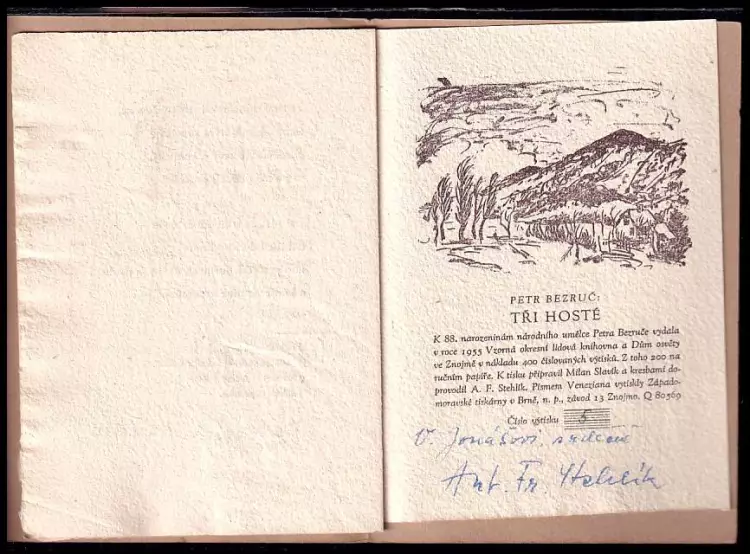 PETR BEZRUČ:
TŘI HOSTÉ
K 88. narozeninám národního umělce Petra Bezruče vydala
v roce 1955 Vzorná okresní lidová knihovna a Dům osvěty
ve Znojmě v nákladu 400 číslovaných výtisků. Z toho 200 na
ručním papíře. K tisku připravil Milan Slavík a kresbami do-
provodil A. F. Stehlík. Písmem Veneziana vytiskly Západo-
moravské tiskárny v Brně, n. p., závod 13 Znojmo. Q 80569
Číslo výtisku 5
V. Jonášovi
Ant. Fr Stehlík